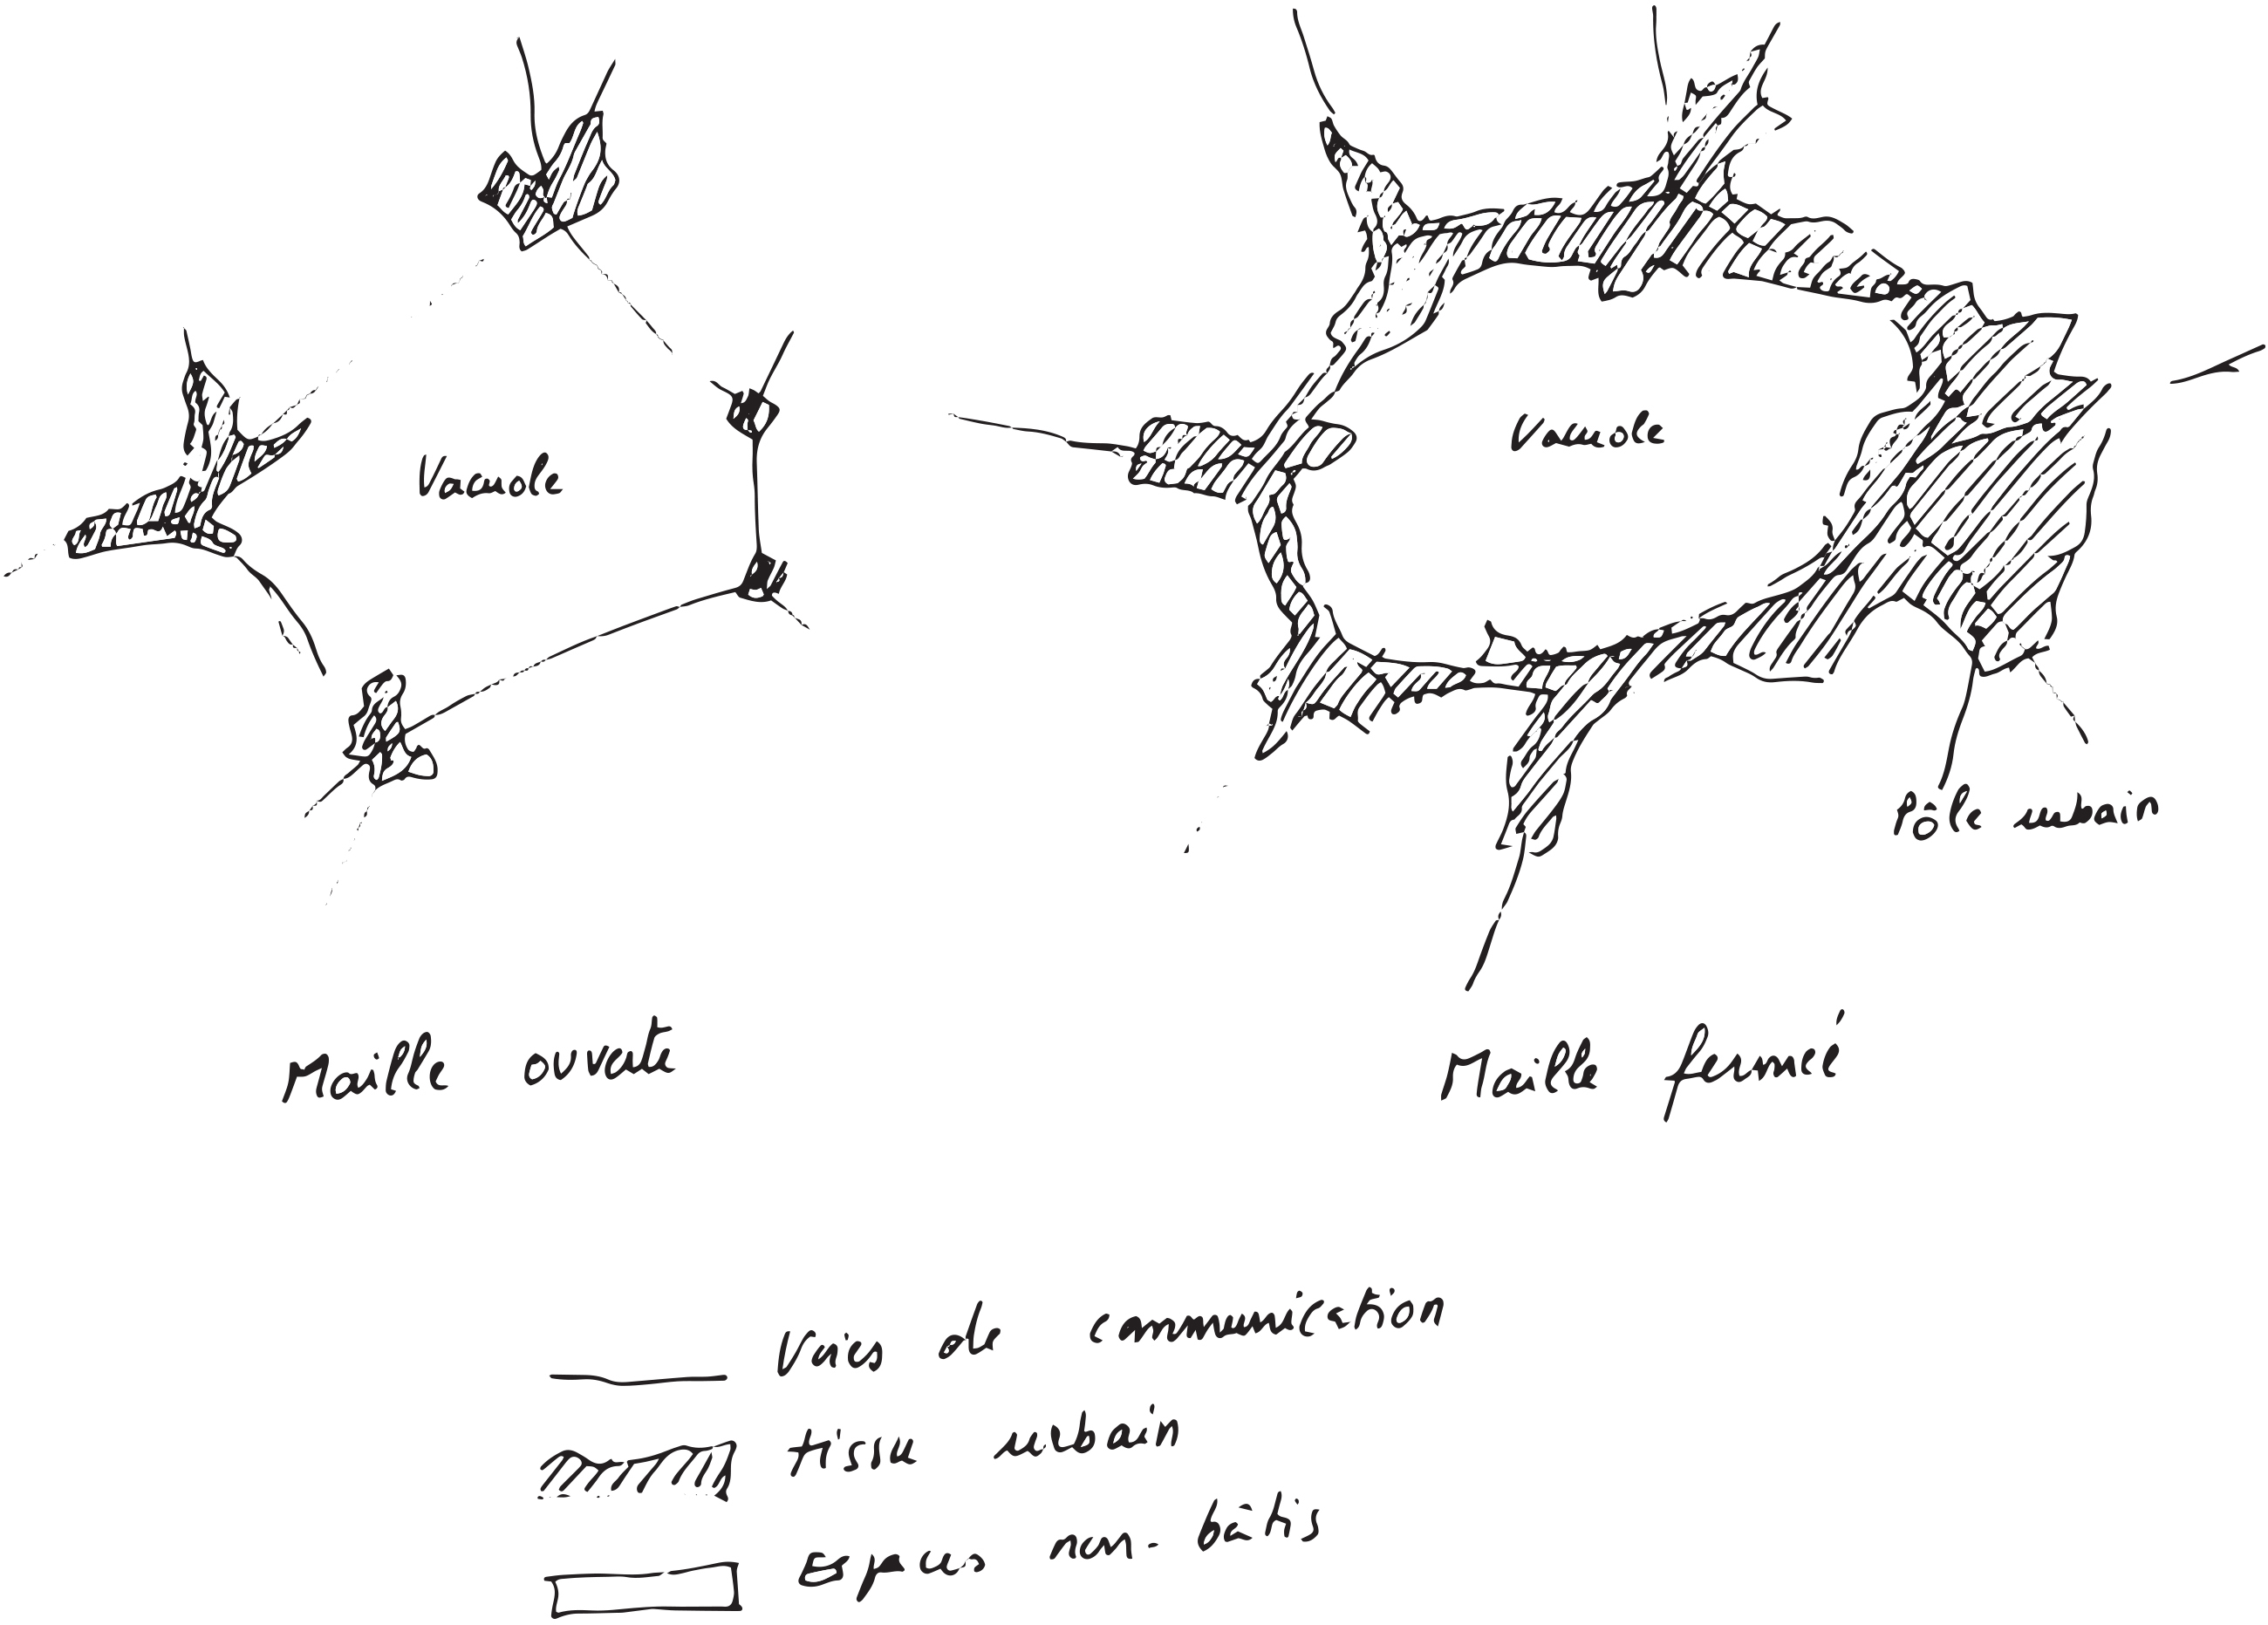 Vacuole
Vacuole
Pôle urbain
Maille ouverte
Maille fermée
Voies de communication
tissu urbain
Espaces non-bâtis